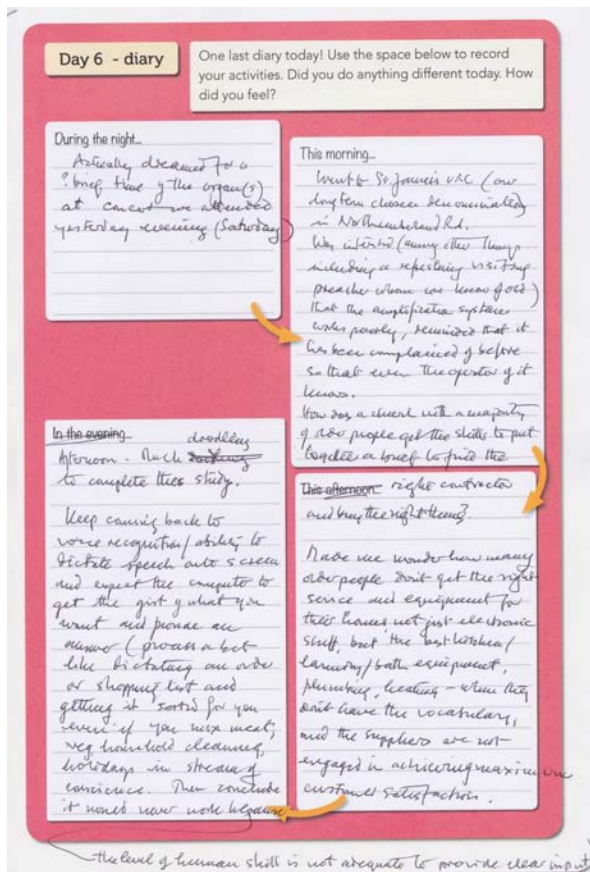 Day 6 - diary
One last diary today! Use the space below to record
your activities. Did you do anything different today. How
did you feel?
During the night...
Actually dreamed for a
? brief time of the organ(s)
at concert we attended
yesterday evening (Saturday)
This morning...
Went to St Francis URC (our
long term chosen denomination)
in Northumberland Rd.
Was interested (among other things
including a refreshing visiting
preacher whom we know of old)
that the amplification systems
works poorly, reminded that it
has been complained of before
so that even the operator of it
knows.
How does a church with a majority
of older people get the skills to put
together a brief to find the
This afternoon... right contractor
and buy the right thing?
Made me wonder how many
older people don't get the right
service and equipment for
their homes not just electronic
stuff, but the best kitchen/
laundry/bath equipment,
plumbing, heating - when they
don't have the vocabulary,
and the suppliers are not
engaged in achieving maximum
customer satisfaction.
In the evening...
Afternoon. Much doodling
to complete this study.
Keep coming back to
voice recognition/ability to
dictate speech onto screen
and expect the computer to
get the gist of what you
want and provide an
answer (process a bit
like dictating an order
or shopping list and
getting it sorted for you
even if you mix meat,
veg, household cleaning,
holidays in stream of
conscience. Then conclude
it would never work because
the level of human skill is not adequate to provide clear input